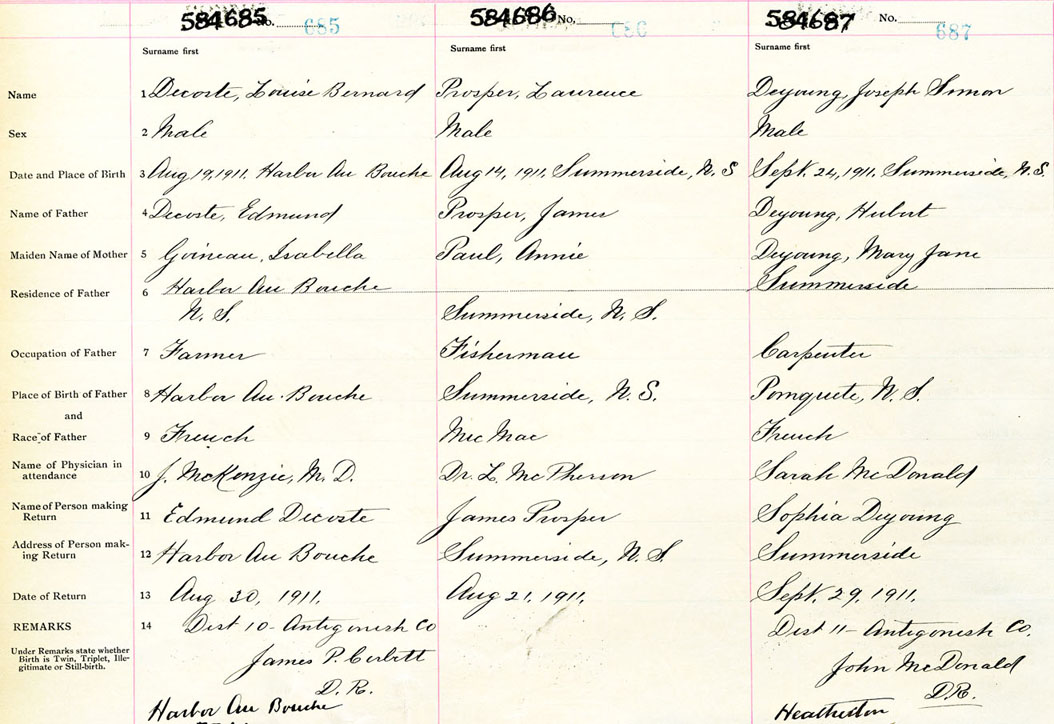 584685 No. 685 584686 No. 686 584687 No. 687
Surname first Surname first Surname first
Name 1 Decoste, Louise Bernard Prosper, Laurence Deyoung, Joseph Simon
Sex 2 Male Male Male
Date and Place of Birth 3 Aug 19, 1911. Harbor Au Bouche Aug 14, 1911, Summerside, N. S Sept. 24, 1911. Summerside, N. S.
Name of Father 4 Decoste, Edmund Prosper, James Deyoung, Hubert
Maiden Name of Mother 5 Goineau, Isabella Paul, Annie Deyoung, Mary Jane
Residence of Father 6 Harbor Au Bouche Summerside
N. S. Summerside, N. S.
Occupation of Father 7 Farmer Fisherman Carpenter
Place of Birth of Father 8 Harbor Au Bouche Summerside, N. S. Pomquete, N. S.
and
Race of Father 9 French Mic Mac French
Name of Physician in
attendance 10 J. McKenzie, M. D. Dr. L. McPherson Sarah McDonald
Name of Person making
Return 11 Edmund Decoste James Prosper Sophia Deyoung
Address of Person mak-
ing Return 12 Harbor Au Bouche Summerside, N. S. Summerside
Date of Return 13 Aug 30, 1911. Aug 21, 1911. Sept. 29, 1911.
REMARKS 14 Dist 10 - Antigonish Co Dist 11 - Antigonish Co.
Under Remarks state whether
Birth is Twin, Triplet, Ille-
gitimate or Still-birth.
James P. Corbett John McDonald
D. R. D.R.
Harbor Au Bouche Heatherton